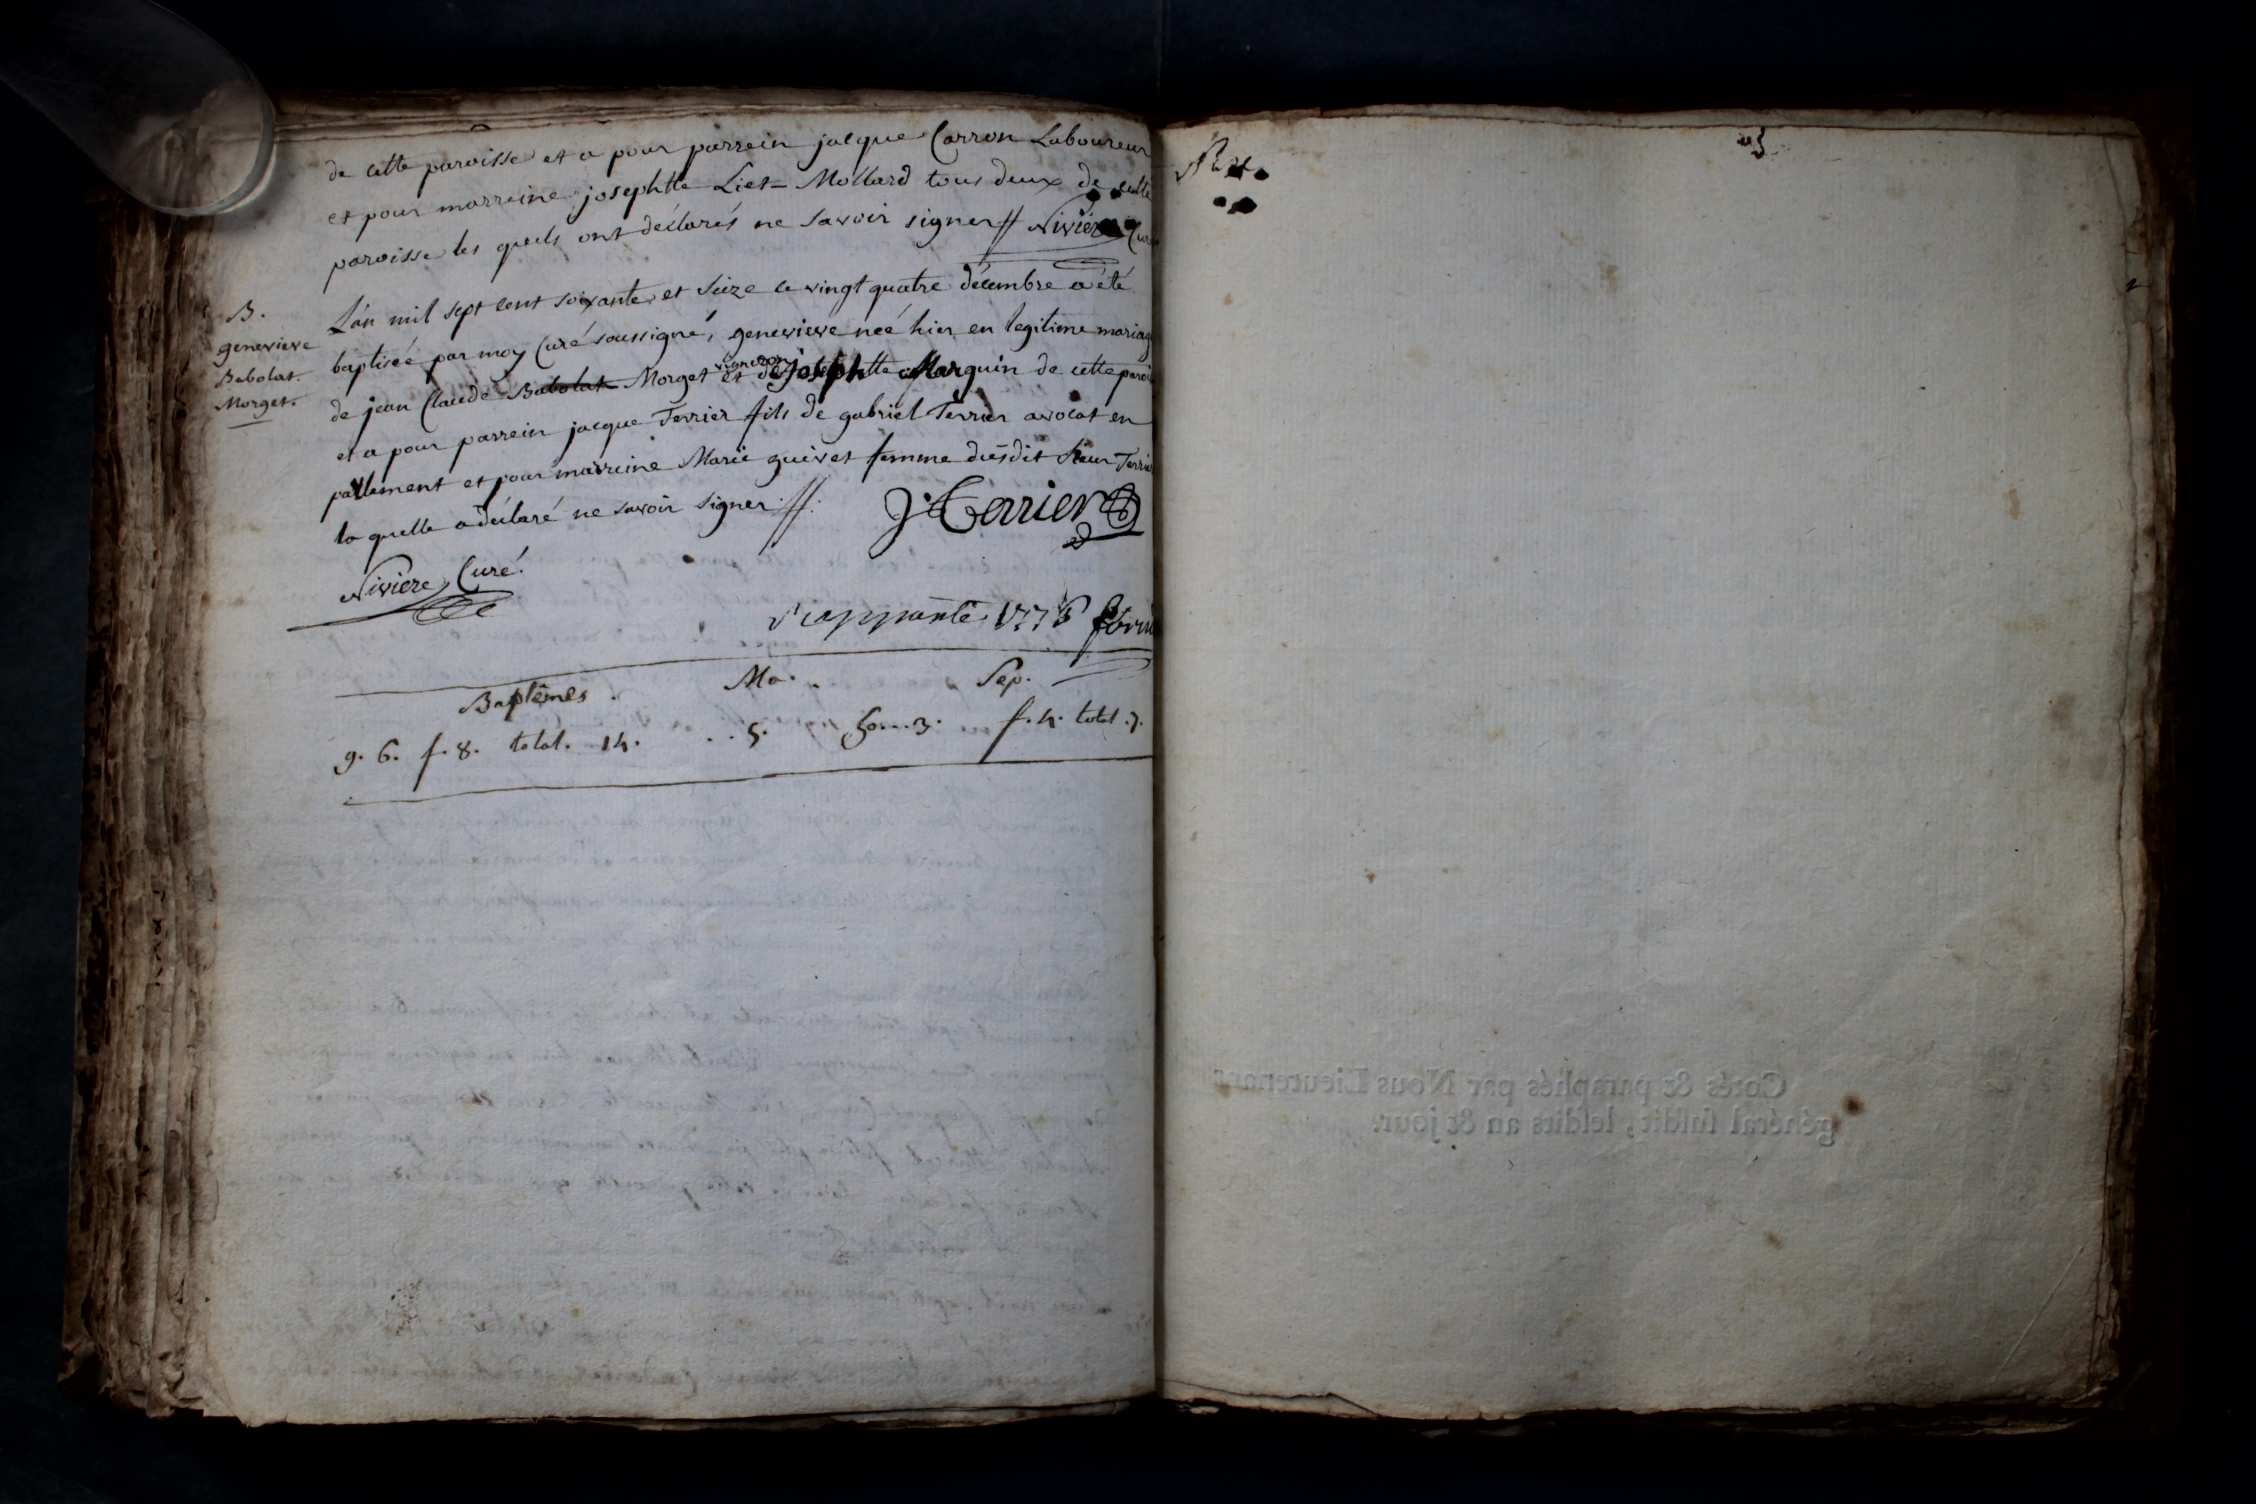 de cette paroisse et a pour parrein jacque Carron Laboureur
et pour marreine josephtte Liet-Mollard tous deux de cette
paroisse les quels ont déclarés ne savoir signer // Nivière Curé
B.
genevieve
Babolat.
Morget.
L'an mil sept cent soixante et seize le vingt quatre décembre a été
baptisée par moy Curé soussigné, genevieve neé hier en legitime mariag
de jean Claude Babolat Morget vigneron et de josephtte Marguin de cette paroi
et a pour parrein jacque Terrier fils de gabriel Terrier avocat en
parlement et pour marreine Marie guivet femme dudit Sieur Terrier
la quelle a déclaré ne savoir signer. //.
J. Terrier
Nivière Curé.
1776
Baptêmes. Ma.. Sep.
g. 6. f. 8. total. 14. ..5. ho...3. f. 4. total .7.
Cotés & paraphés par Nous Lieutenant
général susdit, lesdits an & jour.